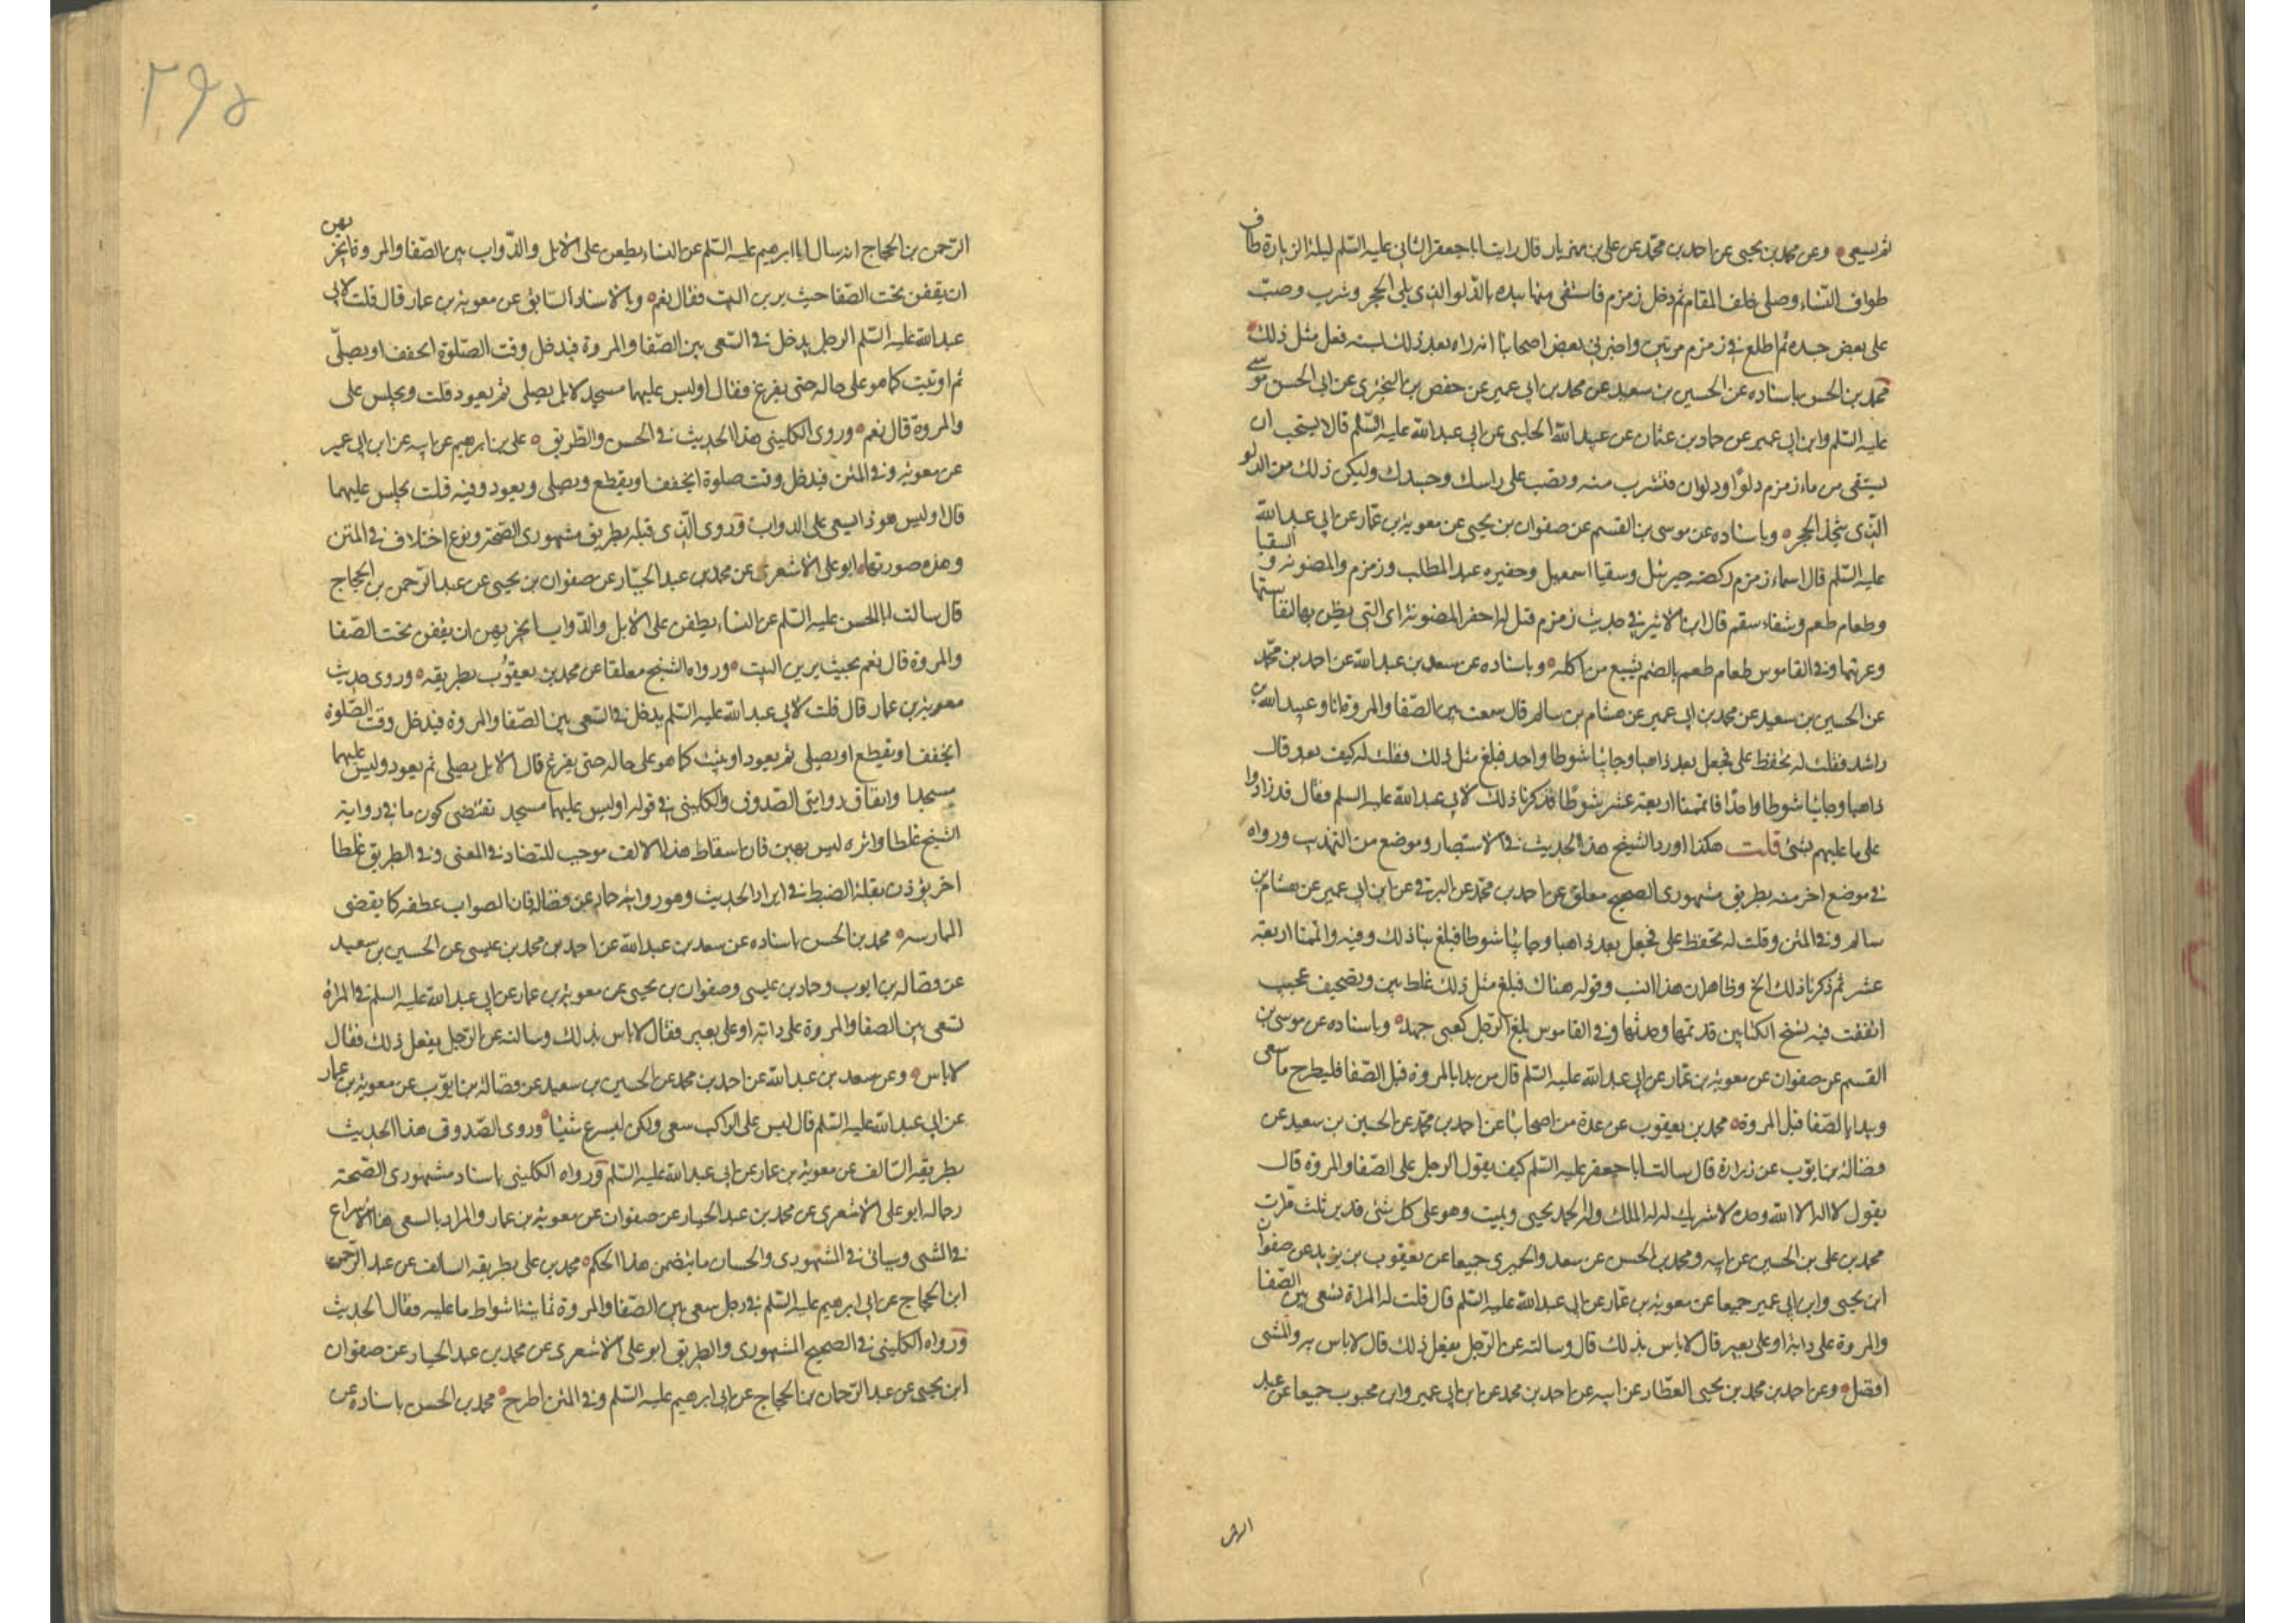 ثم يسعى وعن محمد بن يحيى عن احمد بن محمد عن على بن مهزيار قال رايت ابا جعفر الثانى عليه السلم ليلة الزيارة طاف
طواف النساء وصلى خلف المقام ثم دخل زمزم فاستقى منها بيده بالدلو الذى يلى الحجر وشرب وصب
على بعض جسده ثم اطلع فى زمزم مرتين واخبرنى بعض اصحابنا انه راه بعد ذلك بسنه فعل مثل ذلك
محمد بن الحسن باسناده عن الحسين بن سعيد عن محمد بن ابى عمير عن حفص بن البخترى عن ابى الحسن موسى
عليه السلم وابن ابى عمير عن حماد بن عثمان عن عبيد الله الحلبى عن ابى عبد الله عليه السلم قالا يستحب ان
يستقى من ماء زمزم دلوا او دلوان فتشرب منه وتصب على راسك وجسدك وليكن ذلك من الدلو
الذى بحذا الحجر وباسناده عن موسى بن القسم عن صفوان بن يحيى عن معوية بن عمار عن ابى عبد الله
عليه السلم قال اسماء زمزم ركضه جبرئيل وسقيا اسمعيل وحفيره عبد المطلب وزمزم والمضنونه و السقيا
وطعام طعم وشفاء سقم قال ابن الاثير فى حديث زمزم قيل له احفر المضنونة اى التى يضن بها لنفاستها
وعزتها وفى القاموس طعام طعم بالضم يشبع من اكله وباسناده عن سعد بن عبد الله عن احمد بن محمد
عن الحسين بن سعيد عن محمد بن ابى عمير عن هشام بن سالم قال سعيت بين الصفا والمروة انا وعبيد الله بن
راشد فقلت له تحفظ على فجعل يعد ذاهبا وجائيا شوطا واحد فبلغ مثل ذلك فقلت له كيف تعد قال
ذاهبا وجائيا شوطا واحدا فاتممنا اربعة عشر شوطا فذكرنا ذلك لابى عبد الله عليه السلم فقال قد زادوا
على ما عليهم بشئ قلت هكذا اورد الشيخ هذا الحديث فى الاستبصار وموضع من التهذيب ورواه
فى موضع اخر منه بطريق مشهورى الصحيح معلق عن احمد بن محمد عن البرقى عن ابن ابى عمير عن هشام بن
سالم وفى المتن وقلت له تحفظ على فجعل يعد ذاهبا وجائيا شوطا فبلغ بنا ذلك وفيه واتممنا اربعة
عشر ثم ذكرنا ذلك الخ وظاهر ان هذا انسب وقوله هناك فبلغ مثل ذلك غلط بين وتصحيف عجيب
اتفقت فيه نسخ الكتابين قديمها وحديثها وفى القاموس بلغ الرجل كعنى جهد وباسناده عن موسى بن
القسم عن صفوان عن معوية بن عمار عن ابى عبد الله عليه السلم قال من بدا بالمروة قبل الصفا فليطرح ما سعى
ويبدا بالصفا قبل المروة محمد بن يعقوب عن عدة من اصحابنا عن احمد بن محمد عن الحسين بن سعيد عن
فضالة بن ايوب عن زرارة قال سالت ابا جعفر عليه السلم كيف يقول الرجل على الصفا والمروة قال
يقول لا اله الا الله وحده لا شريك له له الملك وله الحمد يحيى ويميت وهو على كل شئ قدير ثلث مرات
محمد بن على بن الحسين عن ابيه ومحمد بن الحسن عن سعد والحميرى جميعا عن يعقوب بن يزيد عن صفوان
ابن يحيى وابن ابى عمير جميعا عن معوية بن عمار عن ابى عبد الله عليه السلم قال قلت له المراة تسعى بين الصفا
والمروة على دابة او على بعير قال لا باس بذلك قال وسالته عن الرجل يفعل ذلك قال لا باس به والمشى
افضل وعن احمد بن محمد بن يحيى العطار عن ابيه عن احمد بن محمد عن ابن ابى عمير وابن محبوب جميعا عن عبد
الرحمن
٢٩٥
الرحمن بن الحجاج انه سال ابا ابرهيم عليه السلم عن النساء يطفن على الابل والدواب بين الصفا والمروة ايجزيهن
ان يقفن تحت الصفا حيث يرين البيت فقال نعم وبالاسناد السابق عن معوية بن عمار قال قلت لابى
عبد الله عليه السلم الرجل يدخل فى السعى بين الصفا والمروة فيدخل وقت الصلوة ايخفف او يصلى
ثم او يثبت كما هو على حاله حتى يفرغ فقال اوليس عليهما مسجد لا بل يصلى ثم يعود قلت ويجلس على
والمروة قال نعم وروى الكلينى هذا الحديث فى الحسن والطريق على بن ابرهيم عن ابيه عن ابن ابى عمير
عن معوية وفى المتن فيدخل وقت صلوة ايخفف او يقطع ويصلى ويعود وفيه قلت يجلس عليهما
قال اوليس هو ذا يسعى على الدواب وروى الذى قبله بطريق مشهورى الصحة ونوع اختلاف فى المتن
وهذه صورتها ابو على الاشعرى عن محمد بن عبد الجبار عن صفوان بن يحيى عن عبد الرحمن بن الحجاج
قال سالت ابا الحسن عليه السلم عن النساء يطفن على الابل والدواب ايجزيهن ان يقفن تحت الصفا
والمروة قال نعم بحيث يرين البيت ورواه الشيخ معلقا عن محمد بن يعقوب بطريقه وروى حديث
معوية بن عمار قال قلت لابى عبد الله عليه السلم يدخل فى السعى بين الصفا والمروة فيدخل وقت الصلوة
ايخفف او يقطع او يصلى ثم يعود او يثبت كما هو على حاله حتى يفرغ قال لا بل يصلى ثم يعود وليس عليهما
مسجدا واتفاق روايتى الصدوق والكلينى فى قوله اوليس عليهما مسجد تقتضى كون ما فى رواية
الشيخ غلطا واثره ليس بهين فان اسقاط هذا الالف موجب للتضاد فى المعنى وفى الطريق غلطا
اخر يؤذن بقلة الضبط فى ايراد الحديث وهو رواية حماد عن فضالة فان الصواب عطفه كما يقضى
الممارسه محمد بن الحسن باسناده عن سعد بن عبد الله عن احمد بن محمد بن عيسى عن الحسين بن سعيد
عن فضاله بن ايوب وحماد بن عيسى وصفوان بن يحيى عن معوية بن عمار عن ابى عبد الله عليه السلم فى المراة
تسعى بين الصفا والمروة على دابة او على بعير فقال لا باس بذلك وسالته عن الرجل يفعل ذلك فقال
لا باس وعن سعد بن عبد الله عن احمد بن محمد عن الحسين بن سعيد عن فضالة بن ايوب عن معوية بن عمار
عن ابى عبد الله عليه السلم قال ليس على الراكب سعى ولكن ليسرع شيئا وروى الصدوق هذا الحديث
بطريقه السالف عن معوية بن عمار عن ابى عبد الله عليه السلم ورواه الكلينى باسناد مشهورى الصحة
رجاله ابو على الاشعرى عن محمد بن عبد الجبار عن صفوان عن معوية بن عمار والمراد بالسعى هنا الاسراع
فى المشى وسياتى فى المشهورى والحسان ما يتضمن هذا الحكم محمد بن على بطريقه السالف عن عبد الرحمن
ابن الحجاج عن ابى ابرهيم عليه السلم فى رجل سعى بين الصفا والمروة ثمانية اشواط ما عليه فقال الحديث
ورواه الكلينى فى الصحيح المشهورى والطريق ابو على الاشعرى عن محمد بن عبد الجبار عن صفوان
ابن يحيى عن عبد الرحمان بن الحجاج عن ابى ابرهيم عليه السلم وفى المتن اطرح محمد بن الحسن باسناده عن